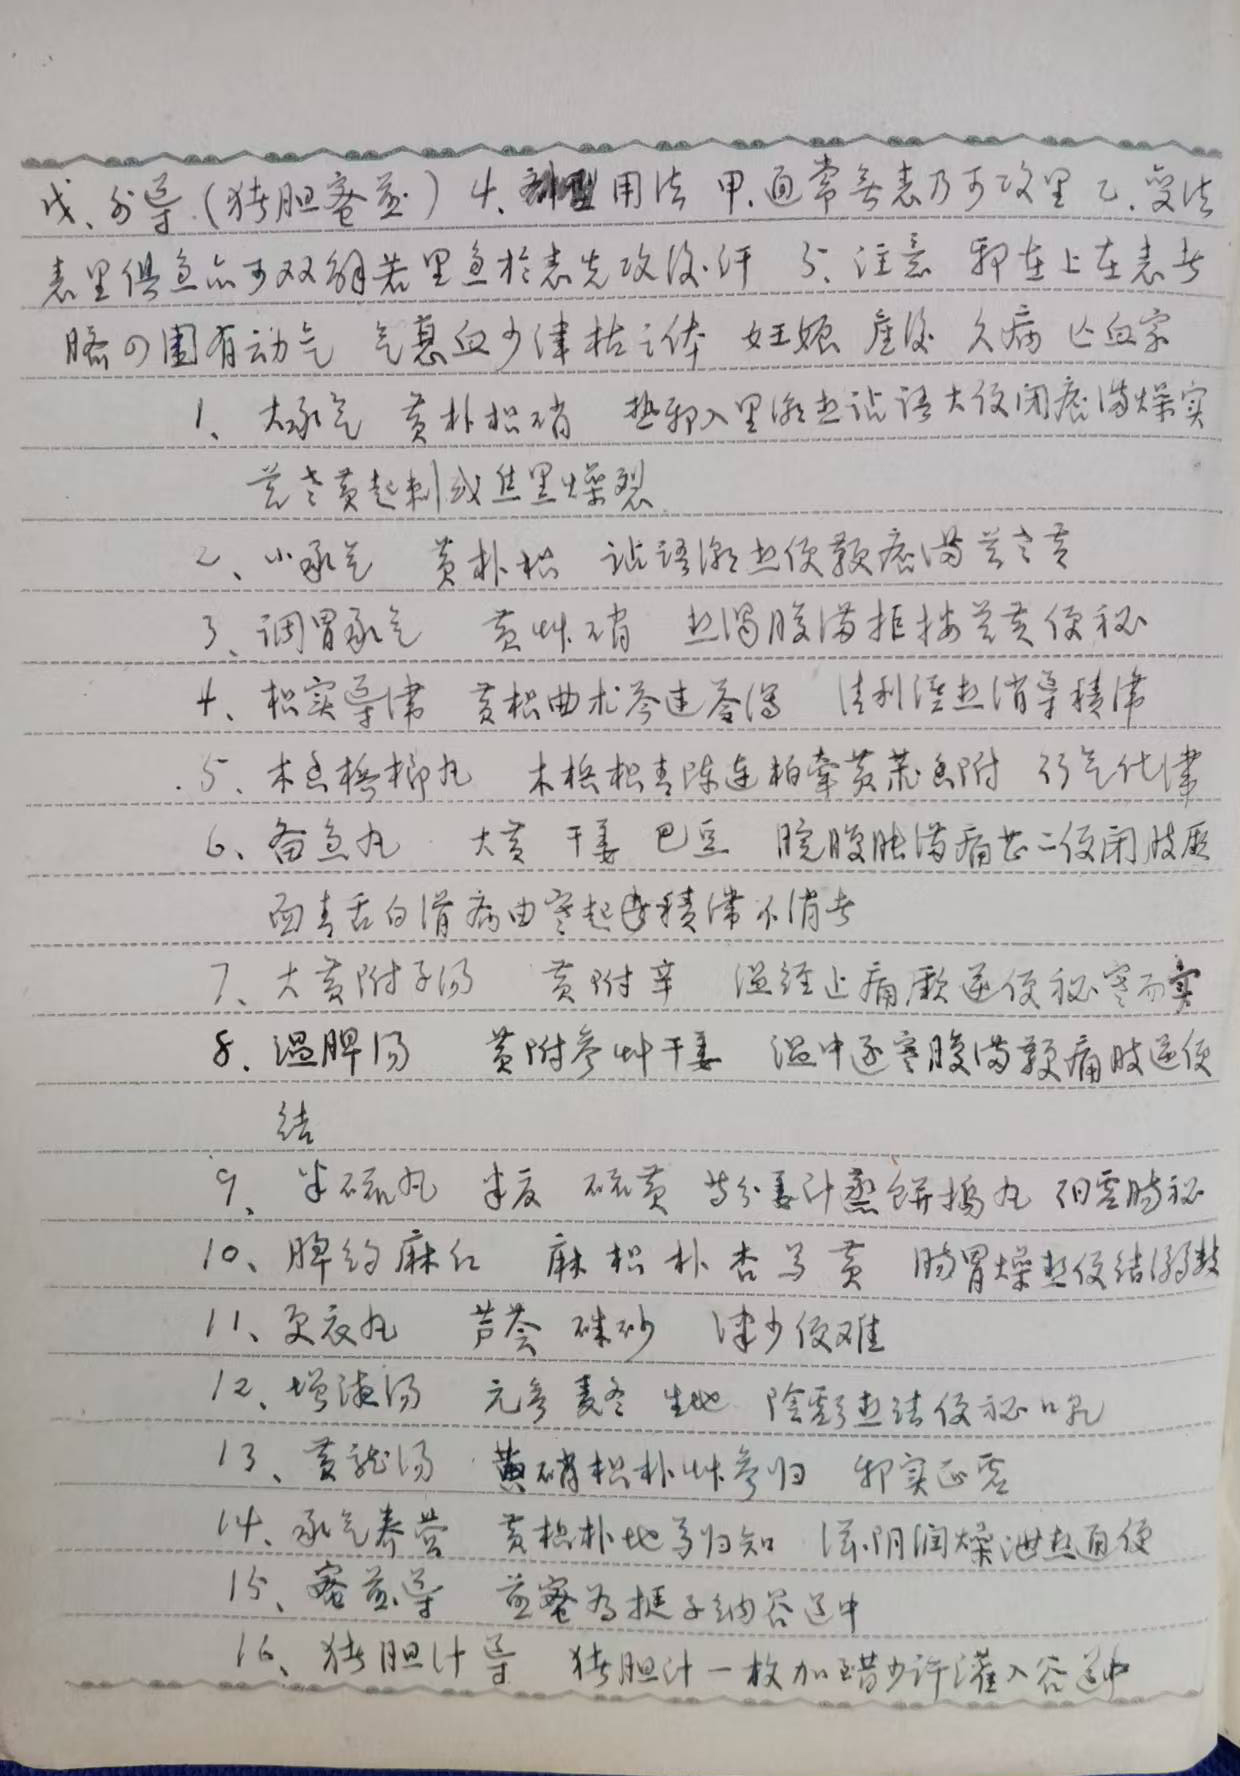 戊、外导(猪胆蜜煎) 4、用法 甲.通常无表乃可攻里 乙.变法
表里俱急亦可双解若里急於表先攻後汗 5、注意 邪在上在表者
脐四围有动气 气息血少津枯之体 妊娠 产後 久病 亡血家
1、大承气 黄朴枳硝 热邪入里潮热谵语大便闭痞满燥实
苔老黄起刺或焦黑燥裂
2、小承气 黄朴枳 谵语潮热便鞕痞满苔老黄
3、调胃承气 黄艸硝 热渴腹满拒按苔黄便秘
4、枳实导滞 黄枳曲术苓连芩泻 清利湿热消导积滞
5、木香槟榔丸 木槟枳青陈连柏牵黄莪香附 行气化滞
6、备急丸 大黄 干姜 巴豆 脘腹胀满痛甚二便闭肢厥
面青舌白滑病由寒起积滞不消者
7、大黄附子汤 黄附辛 温经止痛厥逆便秘寒而实
8、温脾汤 黄附参艸干姜 温中逐寒腹满鞕痛肢逆便
结
9、半硫丸 半夏 硫黄 等分姜汁蒸饼捣丸 阳虚肠秘
10、脾约麻仁 麻枳朴杏芍黄 肠胃燥热便结溺数
11、更衣丸 芦荟 硃砂 津少便难
12、增液汤 元参 麦冬 生地 阴亏热结便秘口乾
13、黄龙汤 黄硝枳朴艸参归 邪实正虚
14、承气养营 黄枳朴地芍归知 滋阴润燥泄热通便
15、蜜煎导 煎蜜为挺子纳谷道中
16、猪胆汁导 猪胆汁一枚加醋少许灌入谷道中